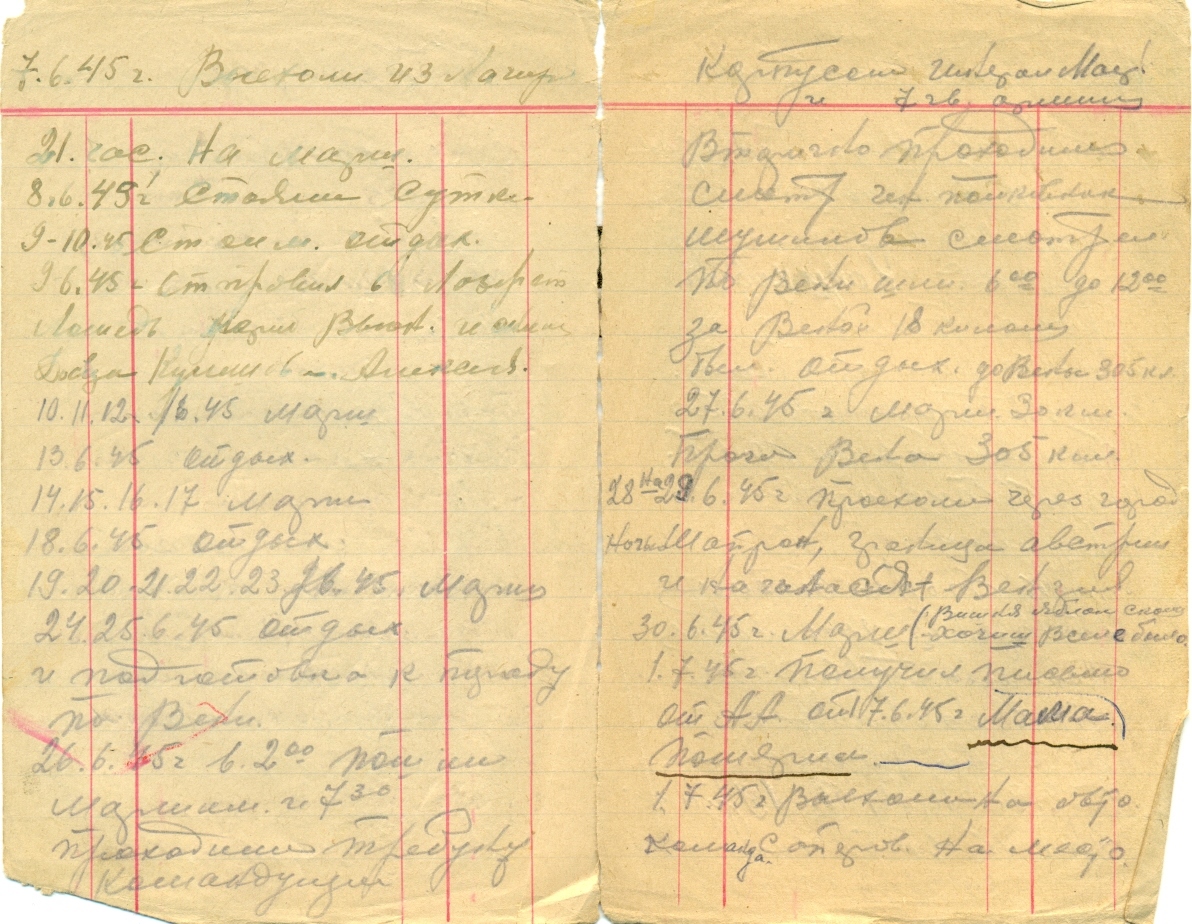 7.6.45 г. Выехали из Лагеря
21. час. На марш.
8.6.45 г Стояли Сутки
9-10.45 Стоим. отдых.
9 6.45 г Отправил в Лазарет
Лошедь
Алексея.
10.11.12 г. 6.45 Марш
13.6.45 отдых.
14.15.16.17 Марш
18.6.45 отдых.
19.20-21.22.23 6.45. Марш
24.25.6.45 отдых
и подготовка к параду
по Вене.
26.6.45 г в 2 00 пошли
Маршам. и 7 30
проходили требуну
Командущий
Корпусам генерал Май
и 7 гв. армии
Вторично проходили
полковник
Шумилов смотрел
По Вене шли 6 00 до 12 00
за Веной 18 килом
был отдых. до Вены 305 км
27.6.45 г Марш 30 км.
Прага Вена 305 км
28 На 29.6.45 г проехали через город
Ночью Шапрон, граница австрии
и началась Венгрия
30.6.45 г. Марш (Вишня яблок
хочиш Всего было.
1.7.45 г Получил письмо
от А.А. от 17.6.45 г Мама
Померла.
1.7.45 г Выехали На
Команда. отправ. На место.